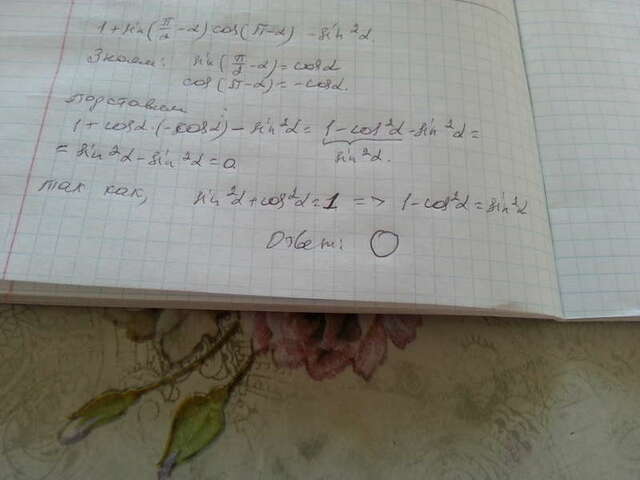 1+sin(π/2-α)cos(π-α)-sin²α.
Знаем: sin(π/2-α)=cosα
cos(π-α)=-cosα.
Подставим
1+cosα·(-cosα)-sin²α=1-cos²α-sin²α=
=sin²α-sin²α=0
sin²α.
так как, sin²α+cos²α=1 => 1-cos²α=sin²α
Ответ: 0